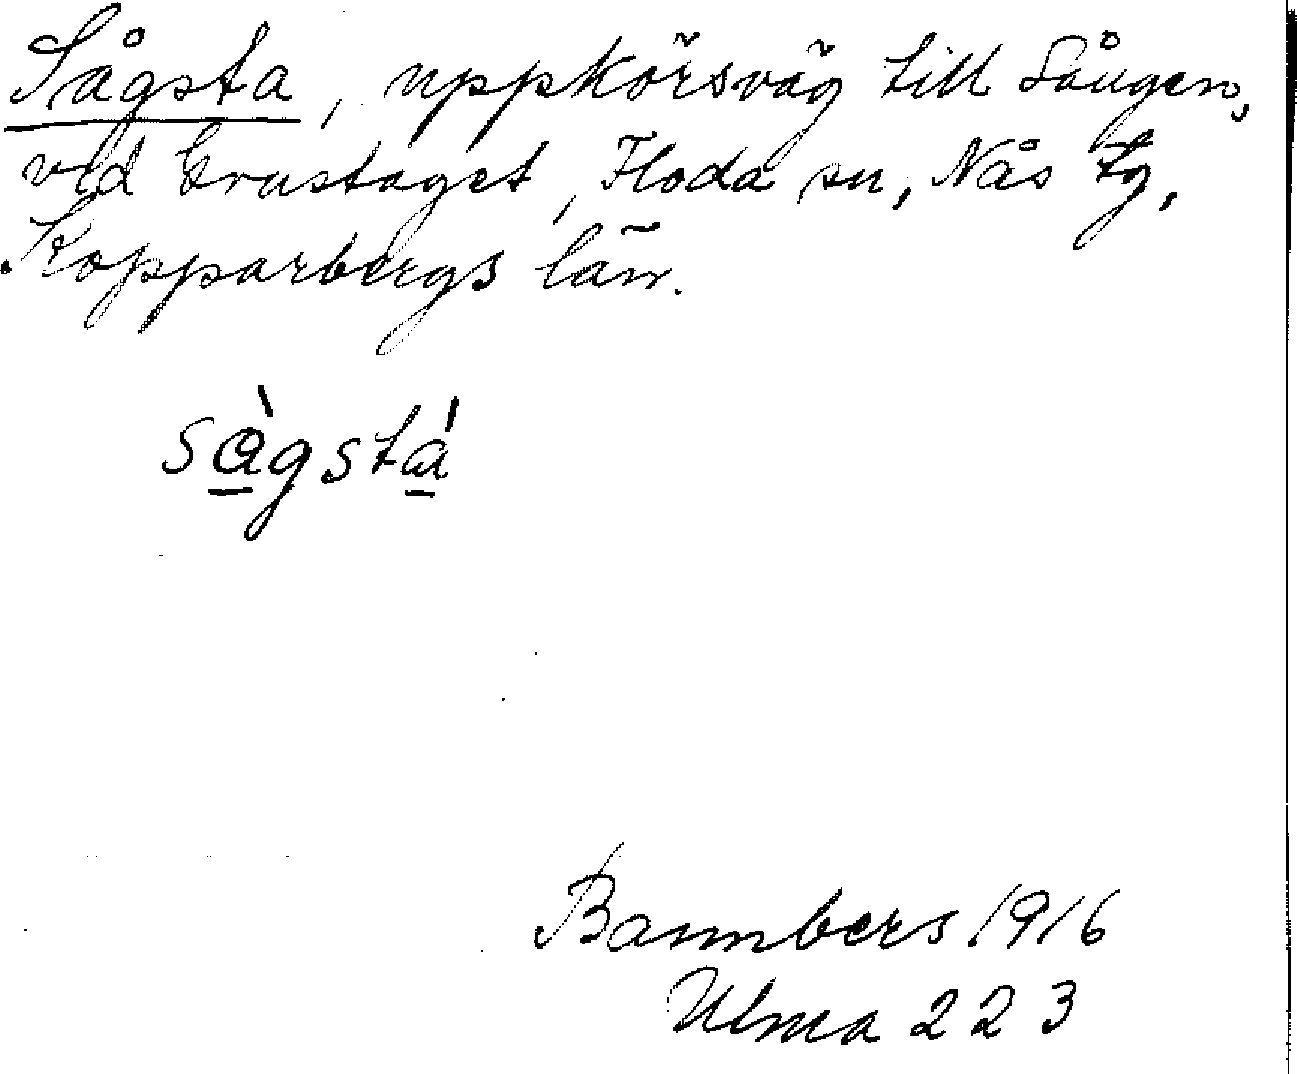 Sågsta, uppkörsväg till Sången,
vid Grustaget, Floda sn, Nås tg,
Kopparbergs län.
sàgstá
Bannbers 1916
Ulma 223